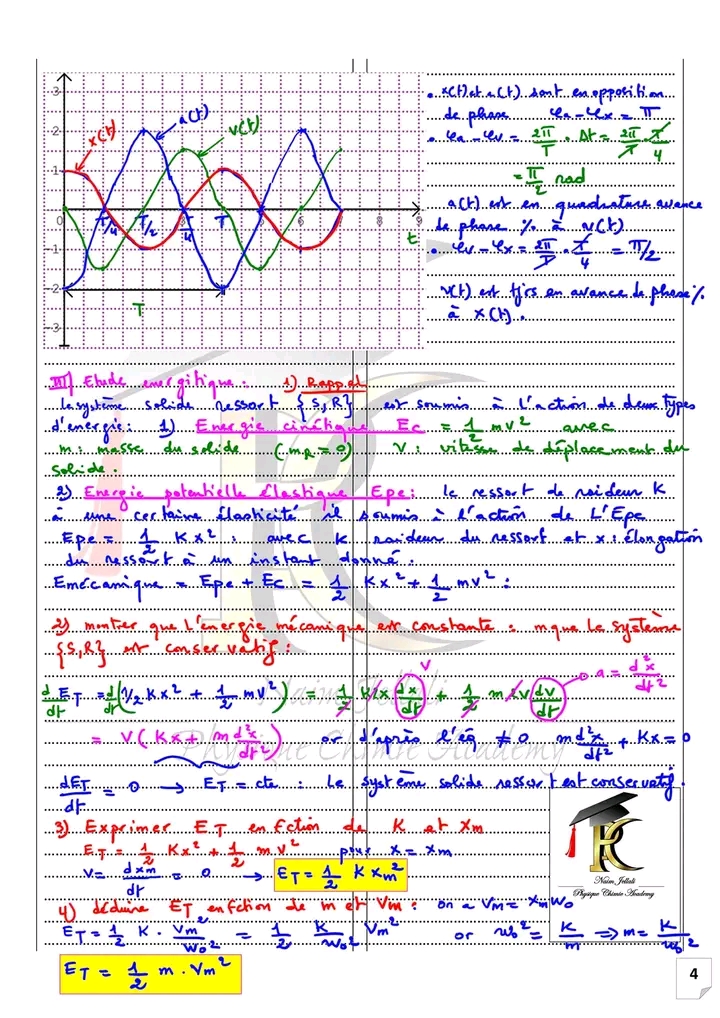 3
2
1
0
-1
-2
-3
6
9
x(t)
a(t)
v(t)
T/4
T/2
3T/4
T
t
T
• x(t) et a(t) sont en opposition
de phase φa - φx = π
• φa - φv = 2π/T . Δt = 2π/T . T/4
= π/2 rad
a(t) est en quadrature avance
de phase % à v(t)
• φv - φx = 2π/T . T/4 = π/2
v(t) est tjrs en avance de phase %
à x(t).
III) Etude energitique. 1) Rappel
le système solide ressort {S,R} est soumis à l'action de deux types
d'energie: 1) Energie cinétique Ec = 1/2 mv² avec
m: masse du solide (mR = 0) V: vitesse de déplacement du
solide.
2) Energie potentielle élastique Epe: le ressort de raideur K
à une certaine élasticité il soumis à l'action de L'Epe
Epe = 1/2 Kx² : avec K raideur du ressort et x: élongation
du ressort à un instant donné.
Emécanique = Epe + Ec = 1/2 Kx² + 1/2 mv² :
2) montrer que l'énergie mécanique est constante : mque le système
{S,R} est conservatif:
d/dt ET = d/dt (1/2 Kx² + 1/2 mV²) = 1/2 K 2x dx/dt + 1/2 m 2v dv/dt
V
a = d²x/dt²
= V(Kx + m d²x/dt²) or d'après l'éq ≠0 m d²x/dt² + Kx = 0
dET/dt = 0 → ET = cte : le système solide ressort est conservatif.
3) Exprimer ET en fction de K et Xm
ET = 1/2 Kx² + 1/2 mv² pour x = xm
v = dxm/dt = 0 → ET = 1/2 K Xm²
4) déduire ET en fction de m et Vm : on a Vm = Xm w0
ET = 1/2 K . Vm²/w0² = 1/2 K/w0² Vm² or w0² = K/m ⇒ m = K/w0²
ET = 1/2 m . Vm²
Naim Jellali
Physique Chimie Academy
Naim Jellali
Physique Chimie Academy
4